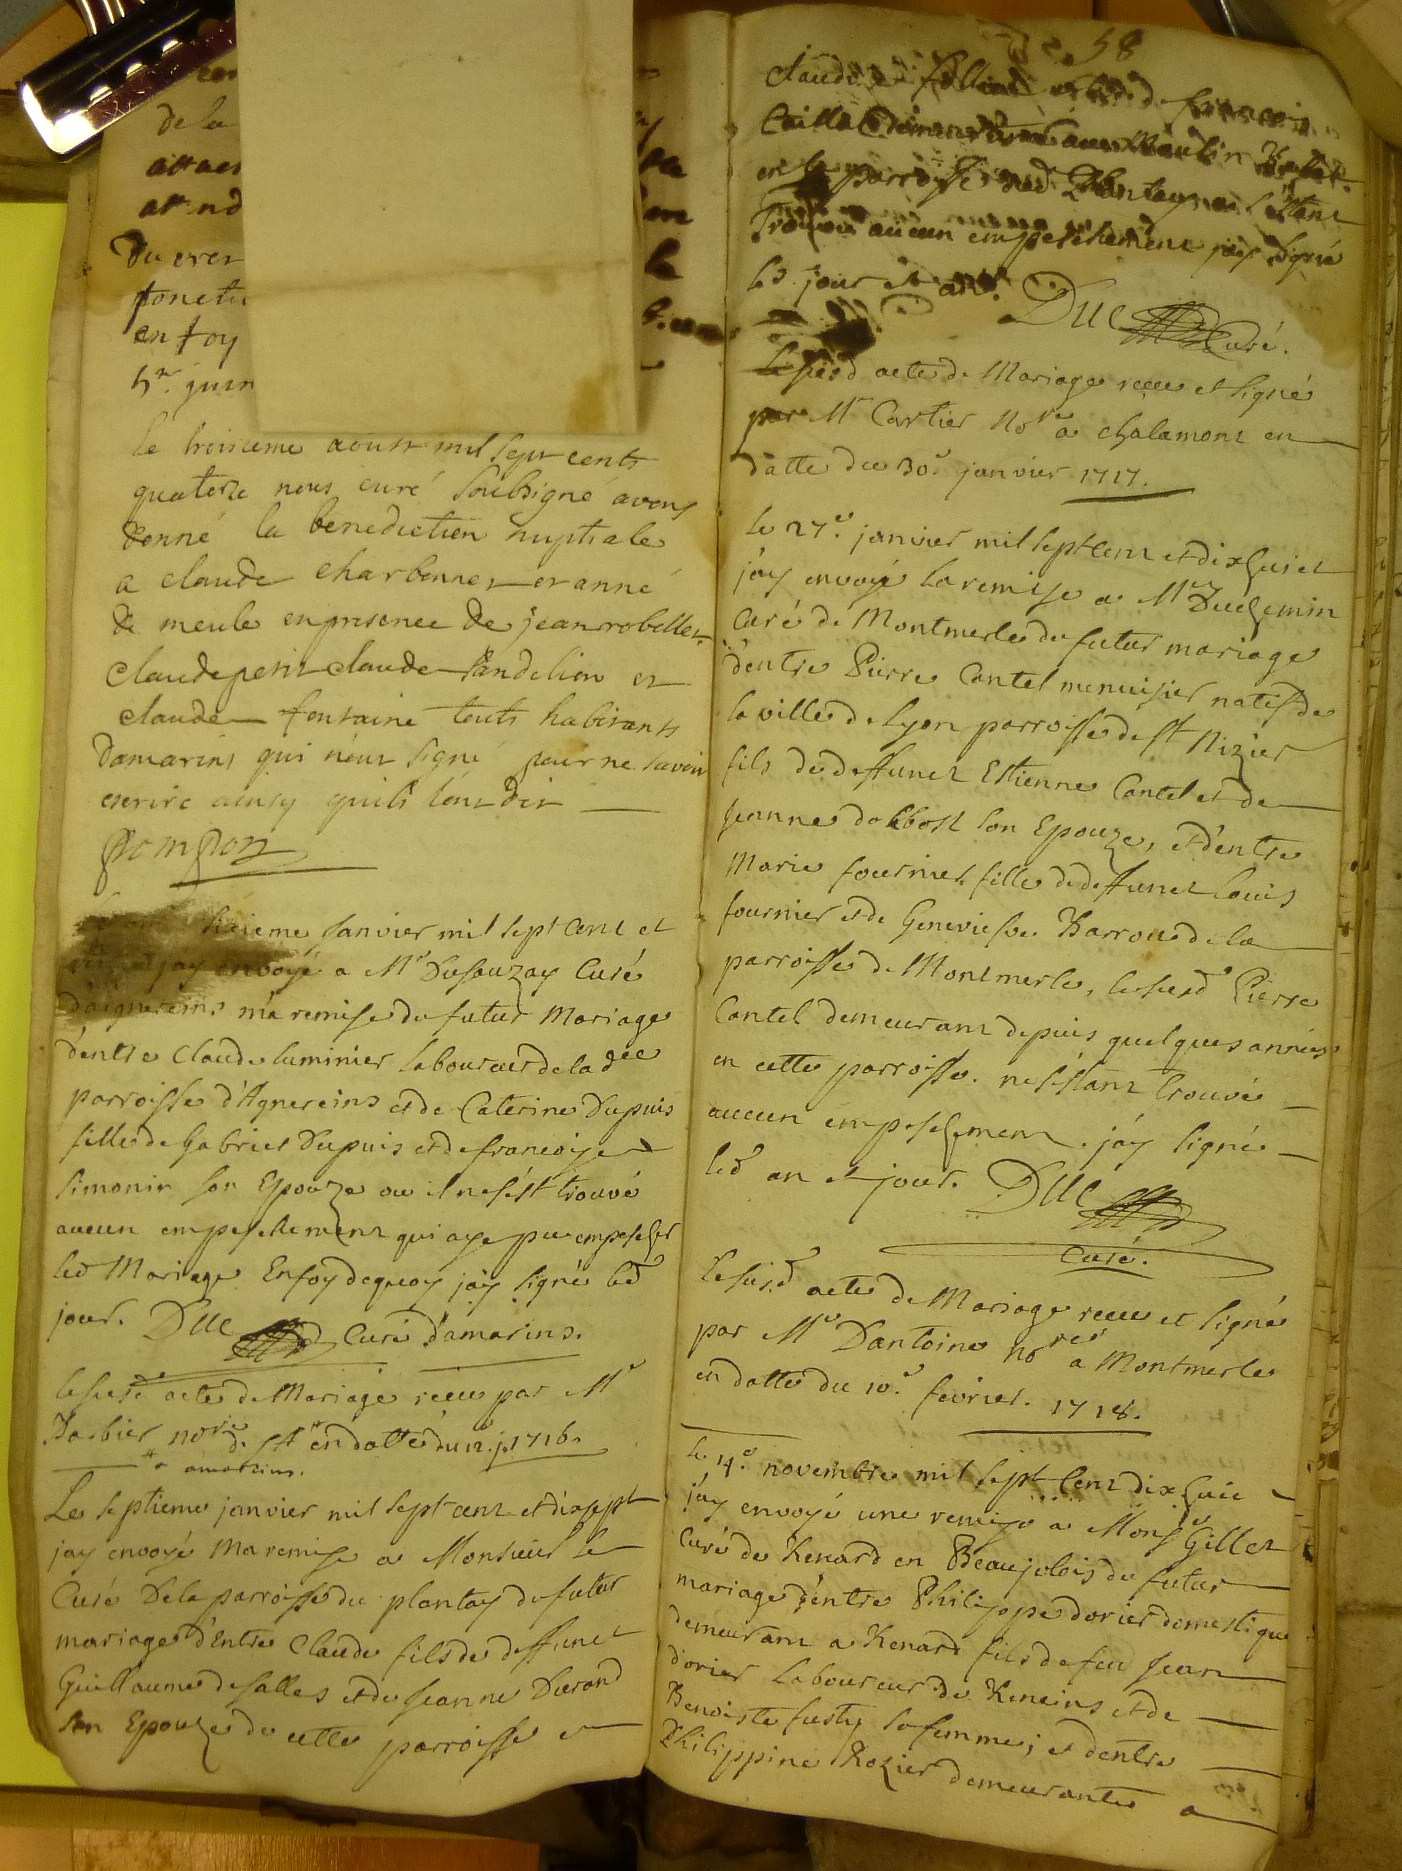 de la
attaen
att nd
Du erer
fonctu
en foy
5re juin
le troisieme aoust mil sept cents
quatorze nous curé soubsigné avons
donné la benediction nuptiale
a claude charbonnet et anne
de meule en presence de jean robellet
claude petit claude sandelion et
claude fontaine touts habitants
damarins qui n'ont signé pour ne savoir
escrire ainsy quils l'ont dit
pompon
sixieme janvier mil sept Cent et
jay envoyé a Mr Dusauzay Curé
daignereins ma remise du futur Mariage
d'entre Claude luminier laboureur de lad dte
parroisse d'Agnereins et de Caterine Dupuis
fille de Gabriel Dupuis et de françoise
simonin son Epouze ou il ne s'est trouvé
aucun empeschement qui aye pu empescher
led Mariage En foy de quoy j'ay signé led
jour. Duc Curé d'amarins.
le susd acte de Mariage receu par Mre
Barbier nore d. St en datte du 12. j. 1716.
amareins.
Le septieme janvier mil sept cent et dix sept
jay envoyé Ma remise a Monsieur le
Curé De la parroisse du plantay du futur
mariage d'Entre Claude fils de deffunct
Guillaume desalles et de Jeanne Durand
son Epouze de cette parroisse et
58
Claudine fillie de françois
en la parroisse dud Plantay ne s'estant
Trouvé aucun empeschement jay signé
les jour et an. Duc Curé.
Le susd acte de Mariage receu et signé
par Mr Cartier Nore a chalamont en
datte du 30e janvier 1717.
le 27e. janvier mil sept Cent et dix huict
j'ay envoyé la remise a Mr Duchemin
Curé de Montmerle du futur mariage
d'entre Pierre Cantel menuisier natif de
la ville de Lyon parroisse de St Nizier
fils de deffunct Estienne Cantel et de
Jeanne dalbost son Epouze, et d'entre
Marie fournier fille de deffunct Louis
fournier et de Genevieve Barrou de la
parroisse de Montmerle, le susd Pierre
Cantel demeurant depuis quelques années
en cette parroisse. ne s'estant trouvé
aucun empeschement. j'ay signé
led an et jour. Duc
Curé.
Le susd acte de Mariage receu et signé
par Mre Dantoine Nore a Montmerle
en datte du 10e. fevrier. 1718.
le 14e. novembre mil sept Cent dix huic
j'ay envoyé une remise a Monsr Gillet
Curé de Kenard en Beaujolois du futur
mariage d'entre Philippe dorier domestique
demeurant a Kenard fils de feu Jean
dorier laboureur de Keneins et de
Benoiste fusty sa femme; et d'entre
Philippine Rozier demeurante a